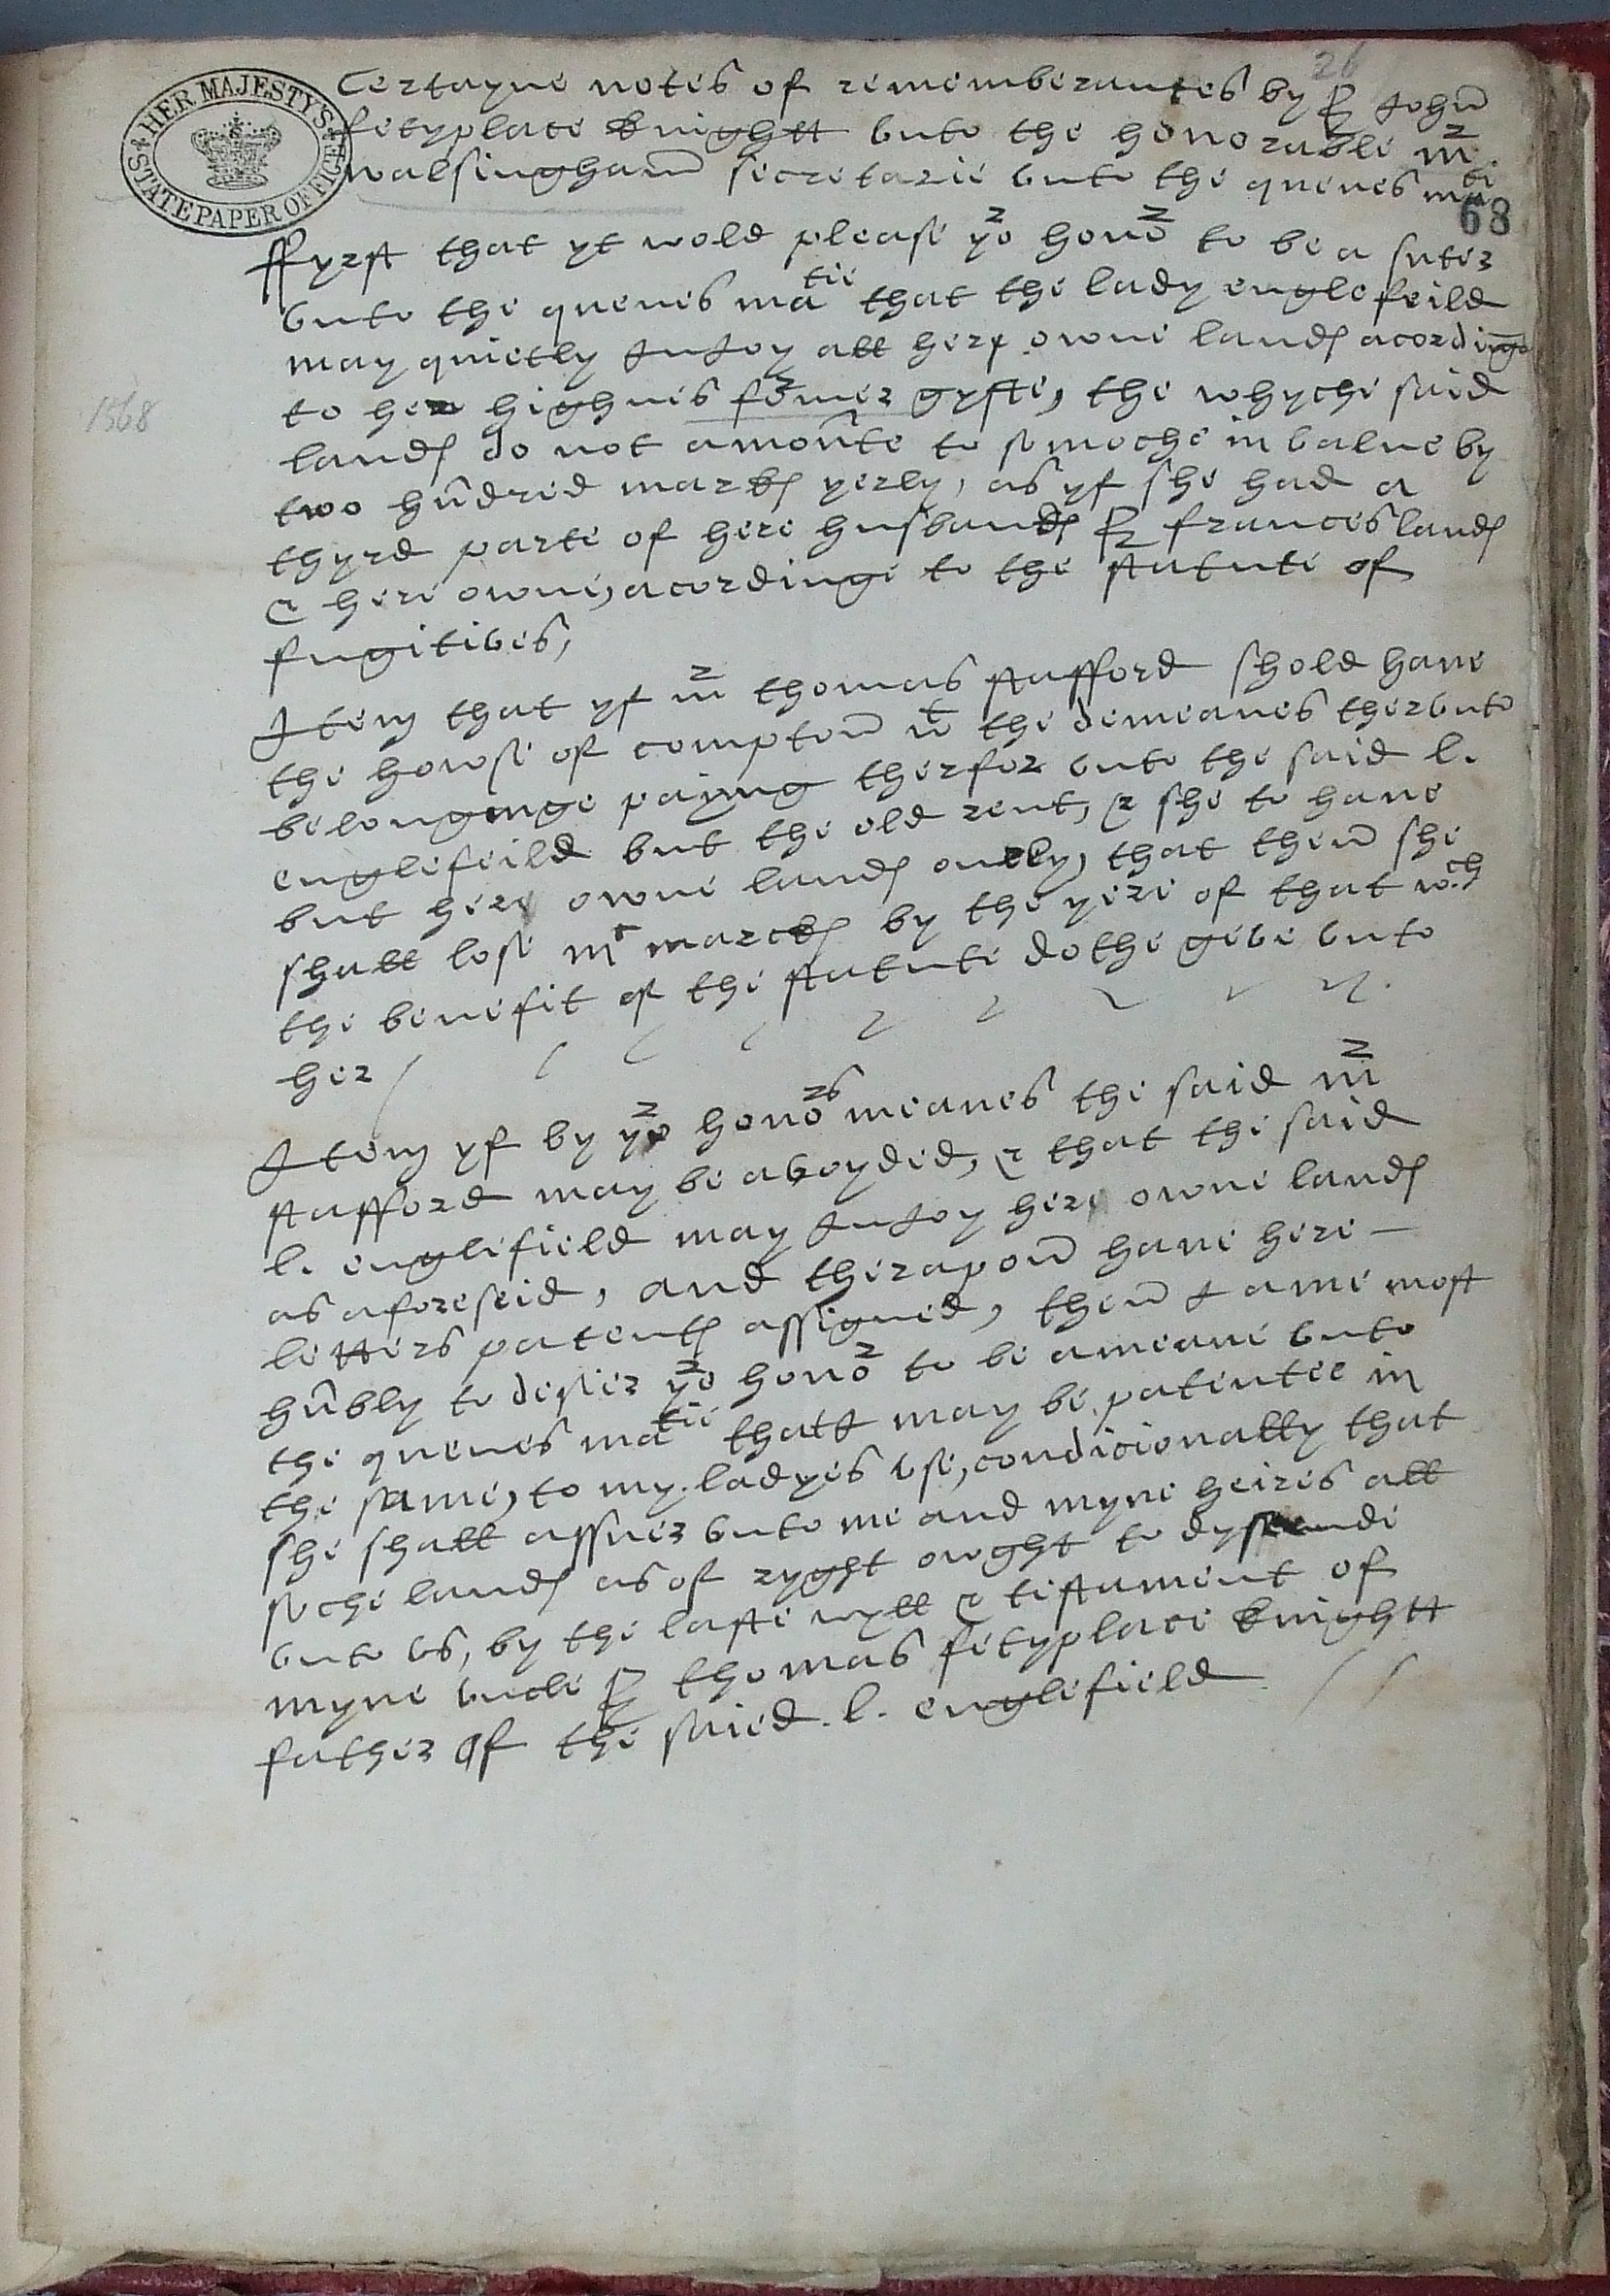 26
Certayne notes of rememberances by Sr John
fetyplace knightt vnto the honorable mr.
walsingham secretarie vnto the quenes matie
68
HER MAJESTY'S STATE PAPER OFFICE
ffyrst that yt wold please yor honor to be a suter
vnto the quenes matie that the lady englefeild
may quietly Inioy all here owne landes acordinge
to her highnes former gyfte, the whyche said
1568
landes do not amonte to so moche in value by
two hundred markes yerly, as yf she had a
thyrd parte of here husbandes Sr frances landes
& here owne, acordinge to the statute of
fugitives,
Item that yf mr thomas stafford shold have
the howse of compton wt the demeanes thervnto
belonginge paying therfor vnto the said l.
englefeild but the old rent, & she to have
but here owne landes onely, that then she
shall lose mc marckes by the yere of that wch
the benefit of the statute dothe geve vnto
her
Item yf by yor honors meanes the said mr
stafford may be avoyded, & that the said
l. englefield may Inioy here owne landes
as aforeseid, and therapon have here
letters patentes assigned, then I ame most
humbly to desier yor honor to be a meane vnto
the quenes matie that I may be patentee in
the same, to my ladyes vse, condicionally that
she shall assuer vnto me and myne heires all
soche landes as of ryght owght to dyscende
vnto vs, by the laste wyll & testament of
myne vncle Sr thomas fetyplace knightt
father of the saied. l. englefield